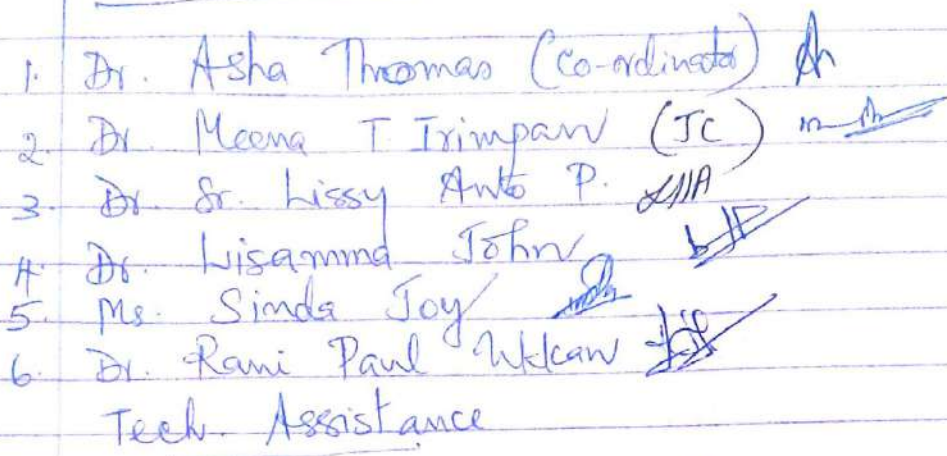 1. Dr. Asha Thomas (Co-ordinator)
2. Dr. Meena T Irimpan (JC)
3. Dr. Sr. Lissy Anto P.
4. Dr. Lisamma John
5. Ms. Sinda Joy
6. Dr. Rani Paul Ukkan
Tech. Assistance